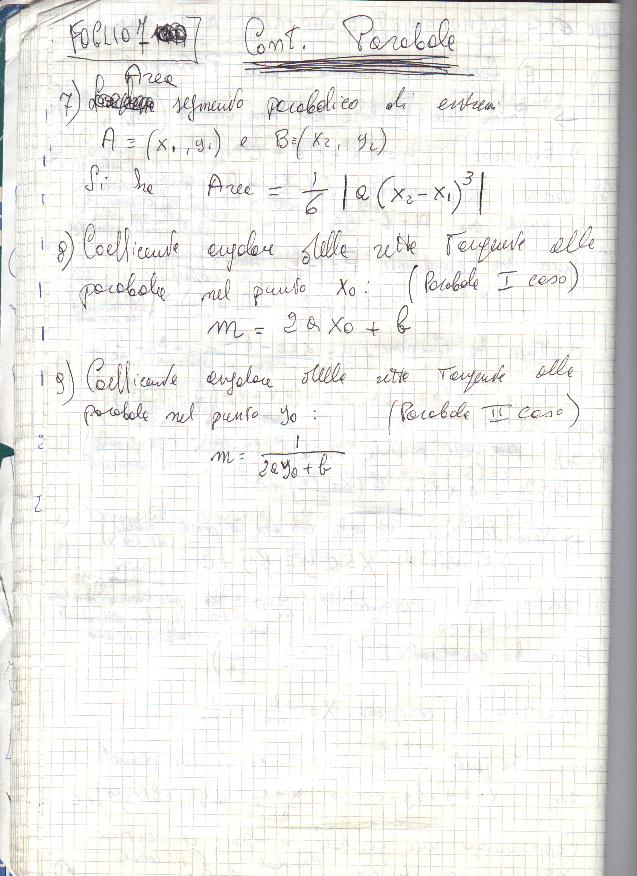 FOGLIO 7
Cont. Parabole
7) Area segmento parabolico di estremi
A ≡ (x₁, y₁) e B≡(x₂, y₂)
Si ha Area = 1/6 |a(x₂-x₁)³|
8) Coefficente angolare della retta Tangente alla
parabola nel punto x₀: (Parabole I caso)
m = 2ax₀ + b
9) Coefficente angolare della retta Tangente alla
parabola nel punto y₀: (Parabole II caso)
m = 1/(2ay₀ + b)